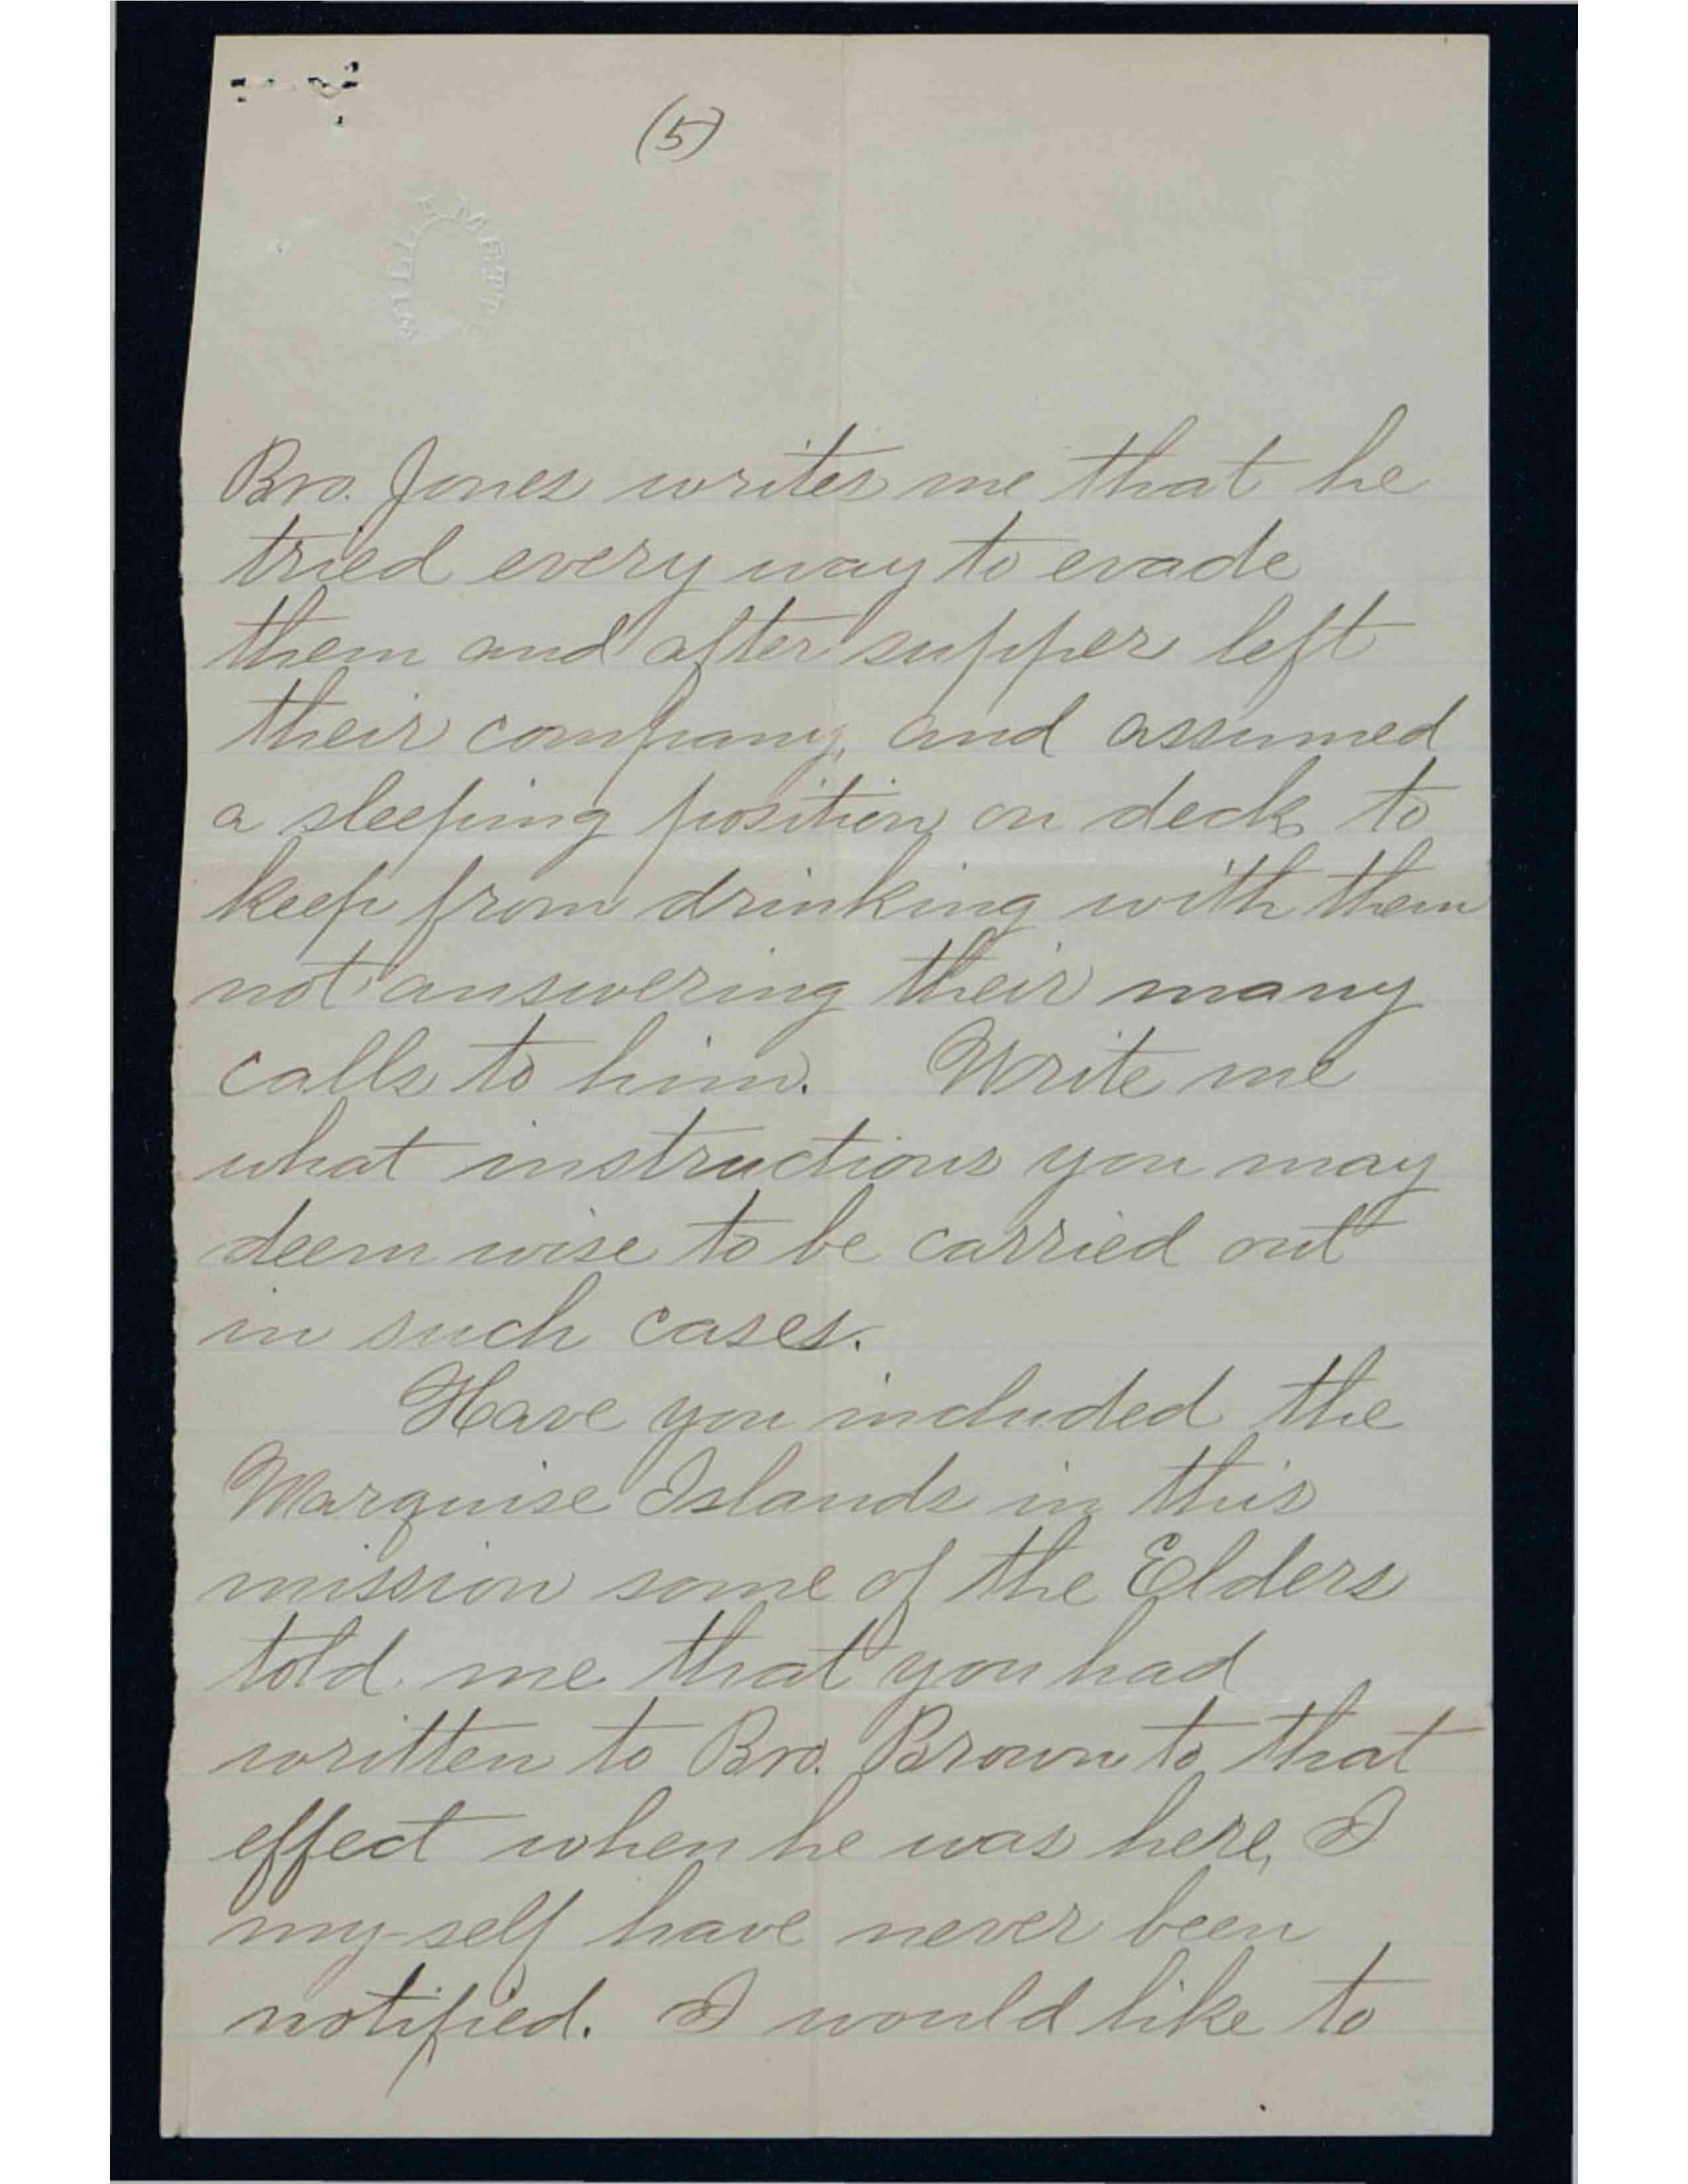 (5)
WILLAMETTE
Bro. Jones writes me that he
tried every way to evade
them and after supper left
their company, and assumed
a sleeping position on deck to
keep from drinking with them
not answering their many
calls to him. Write me
what instructions you may
deem wise to be carried out
in such cases.
Have you included the
Marquise Islands in this
mission some of the Elders
told me that you had
written to Bro. Brown to that
effect when he was here, I
my-self have never been
notified. I would like to